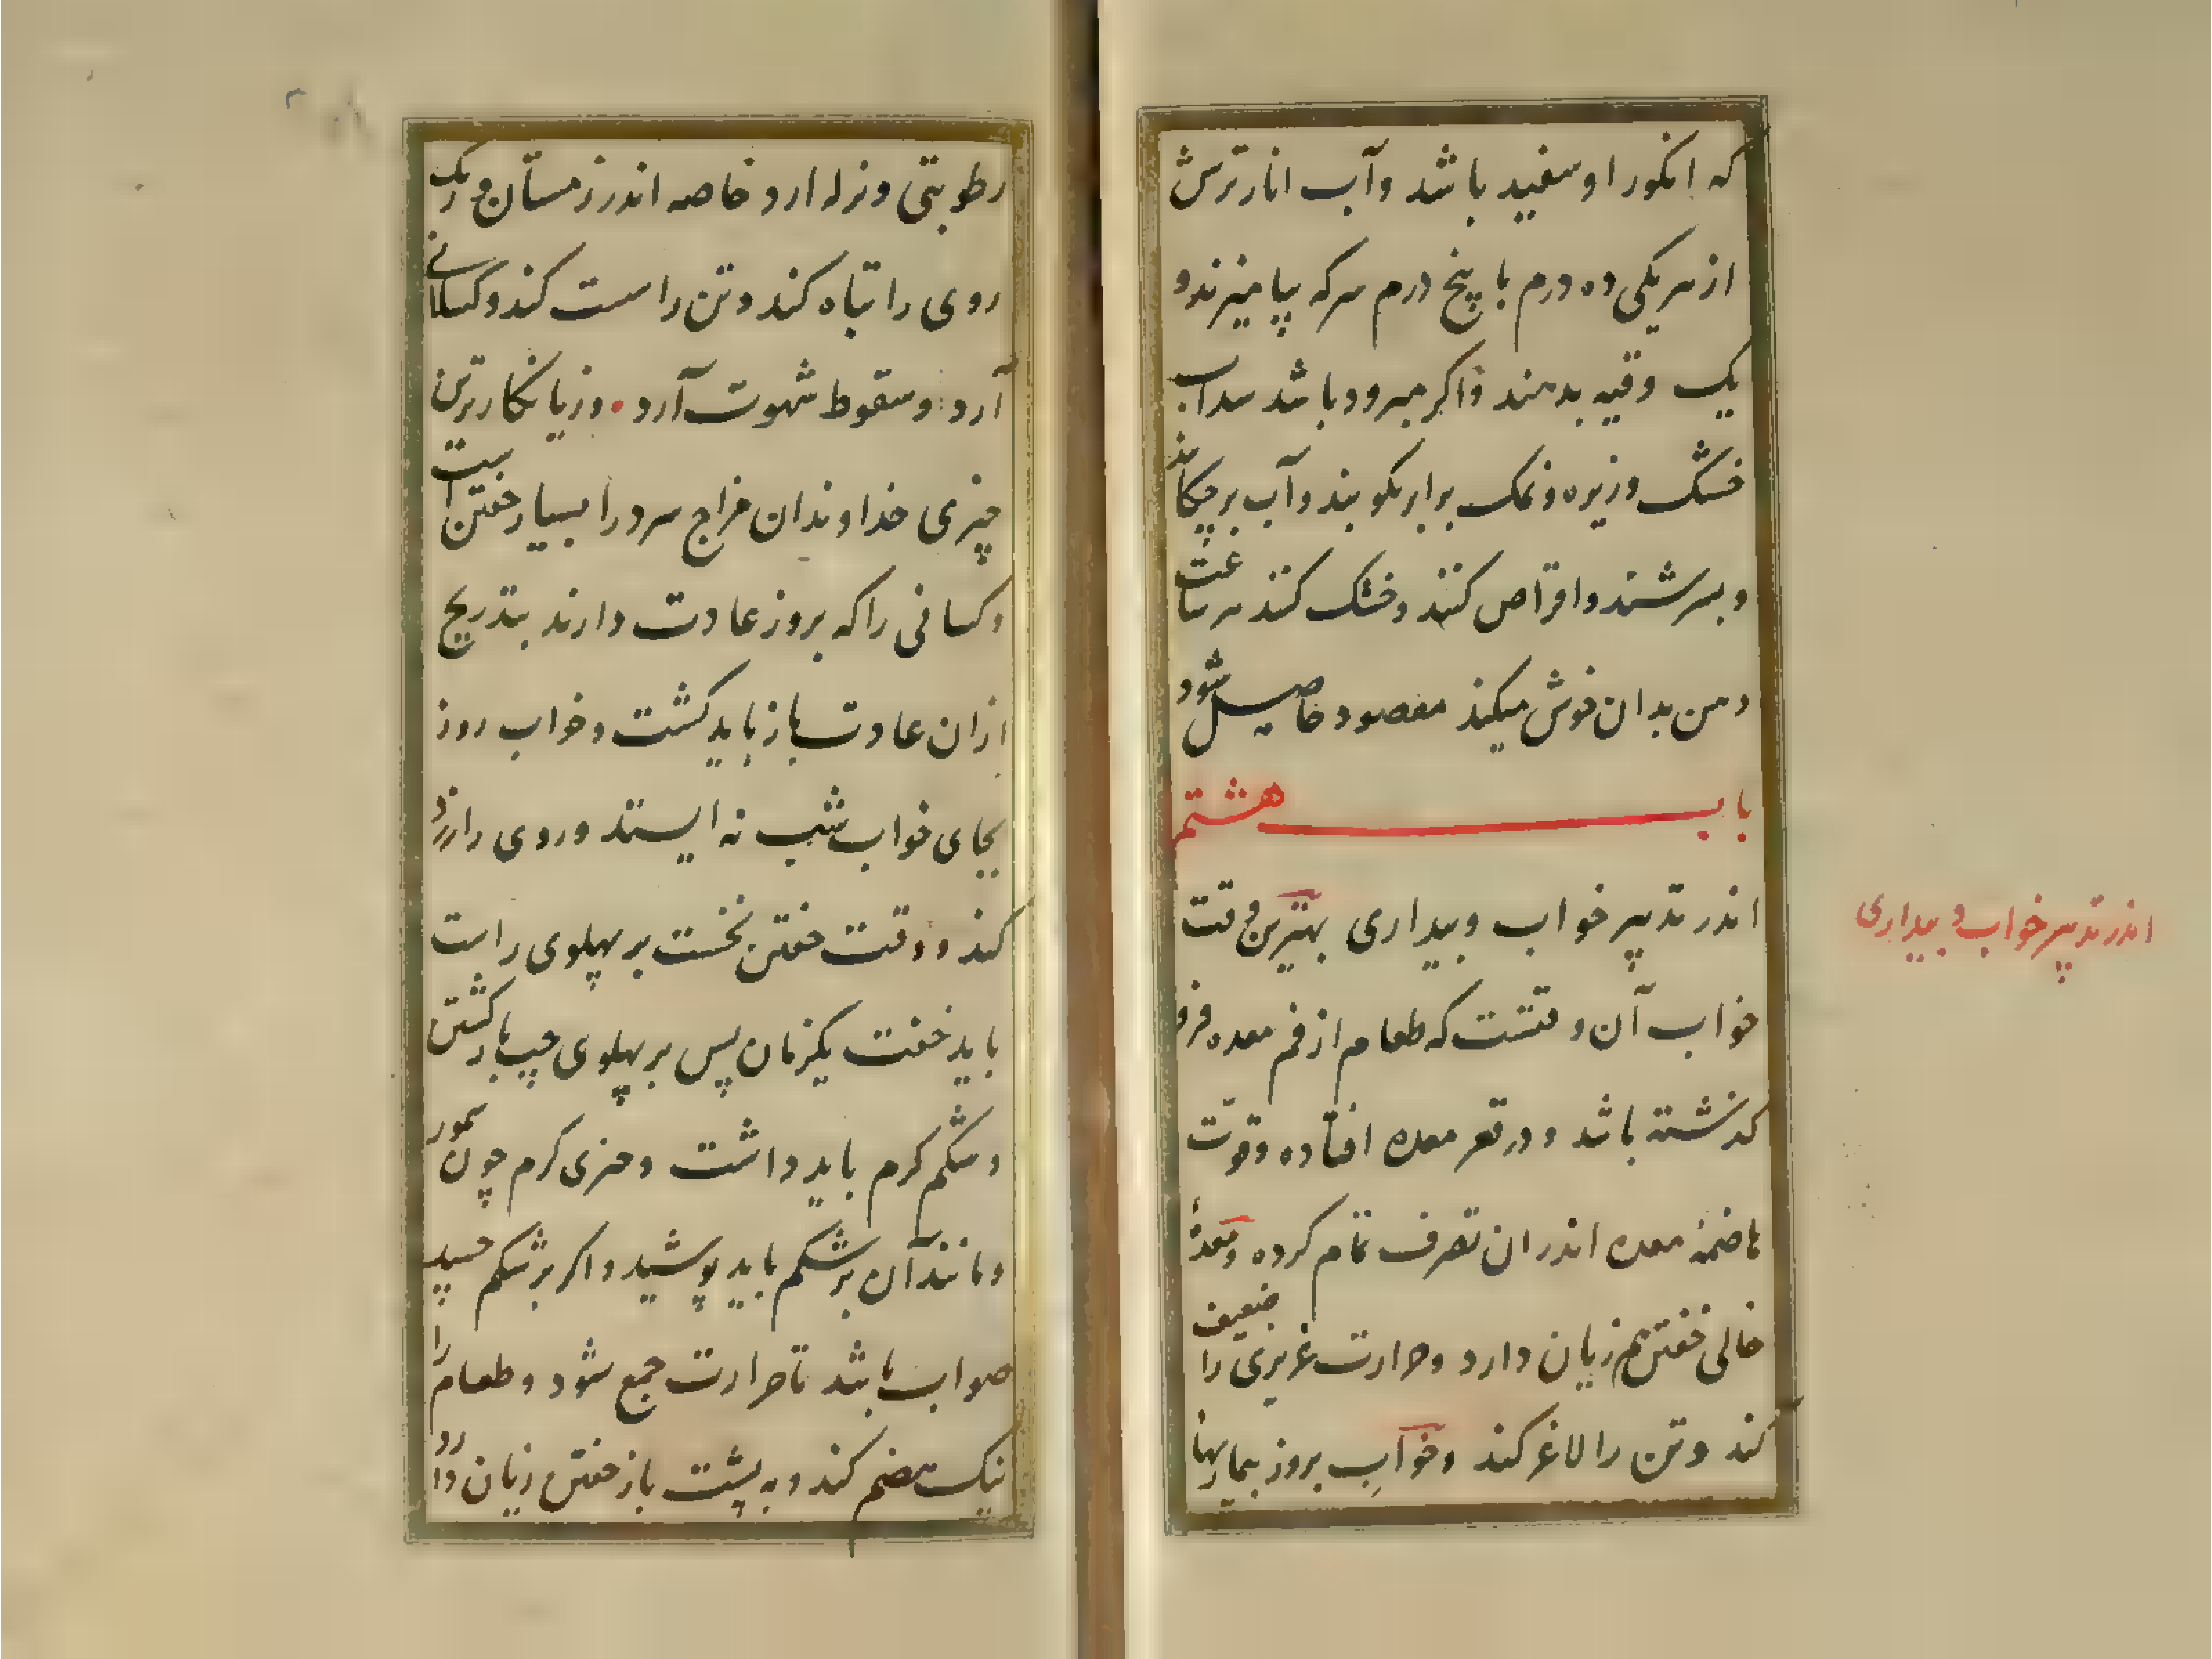 که انکور او سفید باشد و آب انار ترش
از هر یکی ده درم با پنج درم سرکه بیامیزند و
یک وقیه بدهند و اکر مبرود باشد سداب
خشک و زیره و نمک برابر بکوبند و آب بر چکانند
و بسرشند و اقراص کنند و خشک کنند هر ساعت
دهن بدان خوش میکند مقصود حاصل شود
باب هشتم
اندر تدبیر خواب و بیداری بهترین وقت
خواب آن وقتست که طعام از فم معده فرو
کذشته باشد و در قعر معده افتاده و قوت
هاضمهٔ معده اندران تصرف تمام کرده و معدهٔ
خالی خفتن هم زیان دارد و حرارت غریزی را ضعیف
کند و تن را لاغر کند و خواب بروز بیماریها
اندر تدبیر خواب و بیداری
رطوبتی و نزله ارد خاصه اندر زمستان و رنک
روی را تباه کند و تن را سست کند و کسلانی
آرد و سقوط شهوت آرد و زیانکارترین
چیزی خداوندان مزاج سرد را بسیار خفتن است
و کسانی را که بروز عادت دارند بتدریج
ازان عادت باز باید کشت و خواب روز
بجای خواب شب نه ایستد و روی را زرد
کند و وقت خفتن نخست بر پهلوی راست
باید خفت یکزمان پس بر پهلوی چپ باز کشتن
و شکم کرم باید داشت و چیزی کرم چون سمور
و مانند آن بر شکم باید پوشید و اکر بر شکم خسپد
صواب باشد تا حرارت جمع شود و طعام را
نیک هضم کند و به پشت باز خفتن زیان دارد